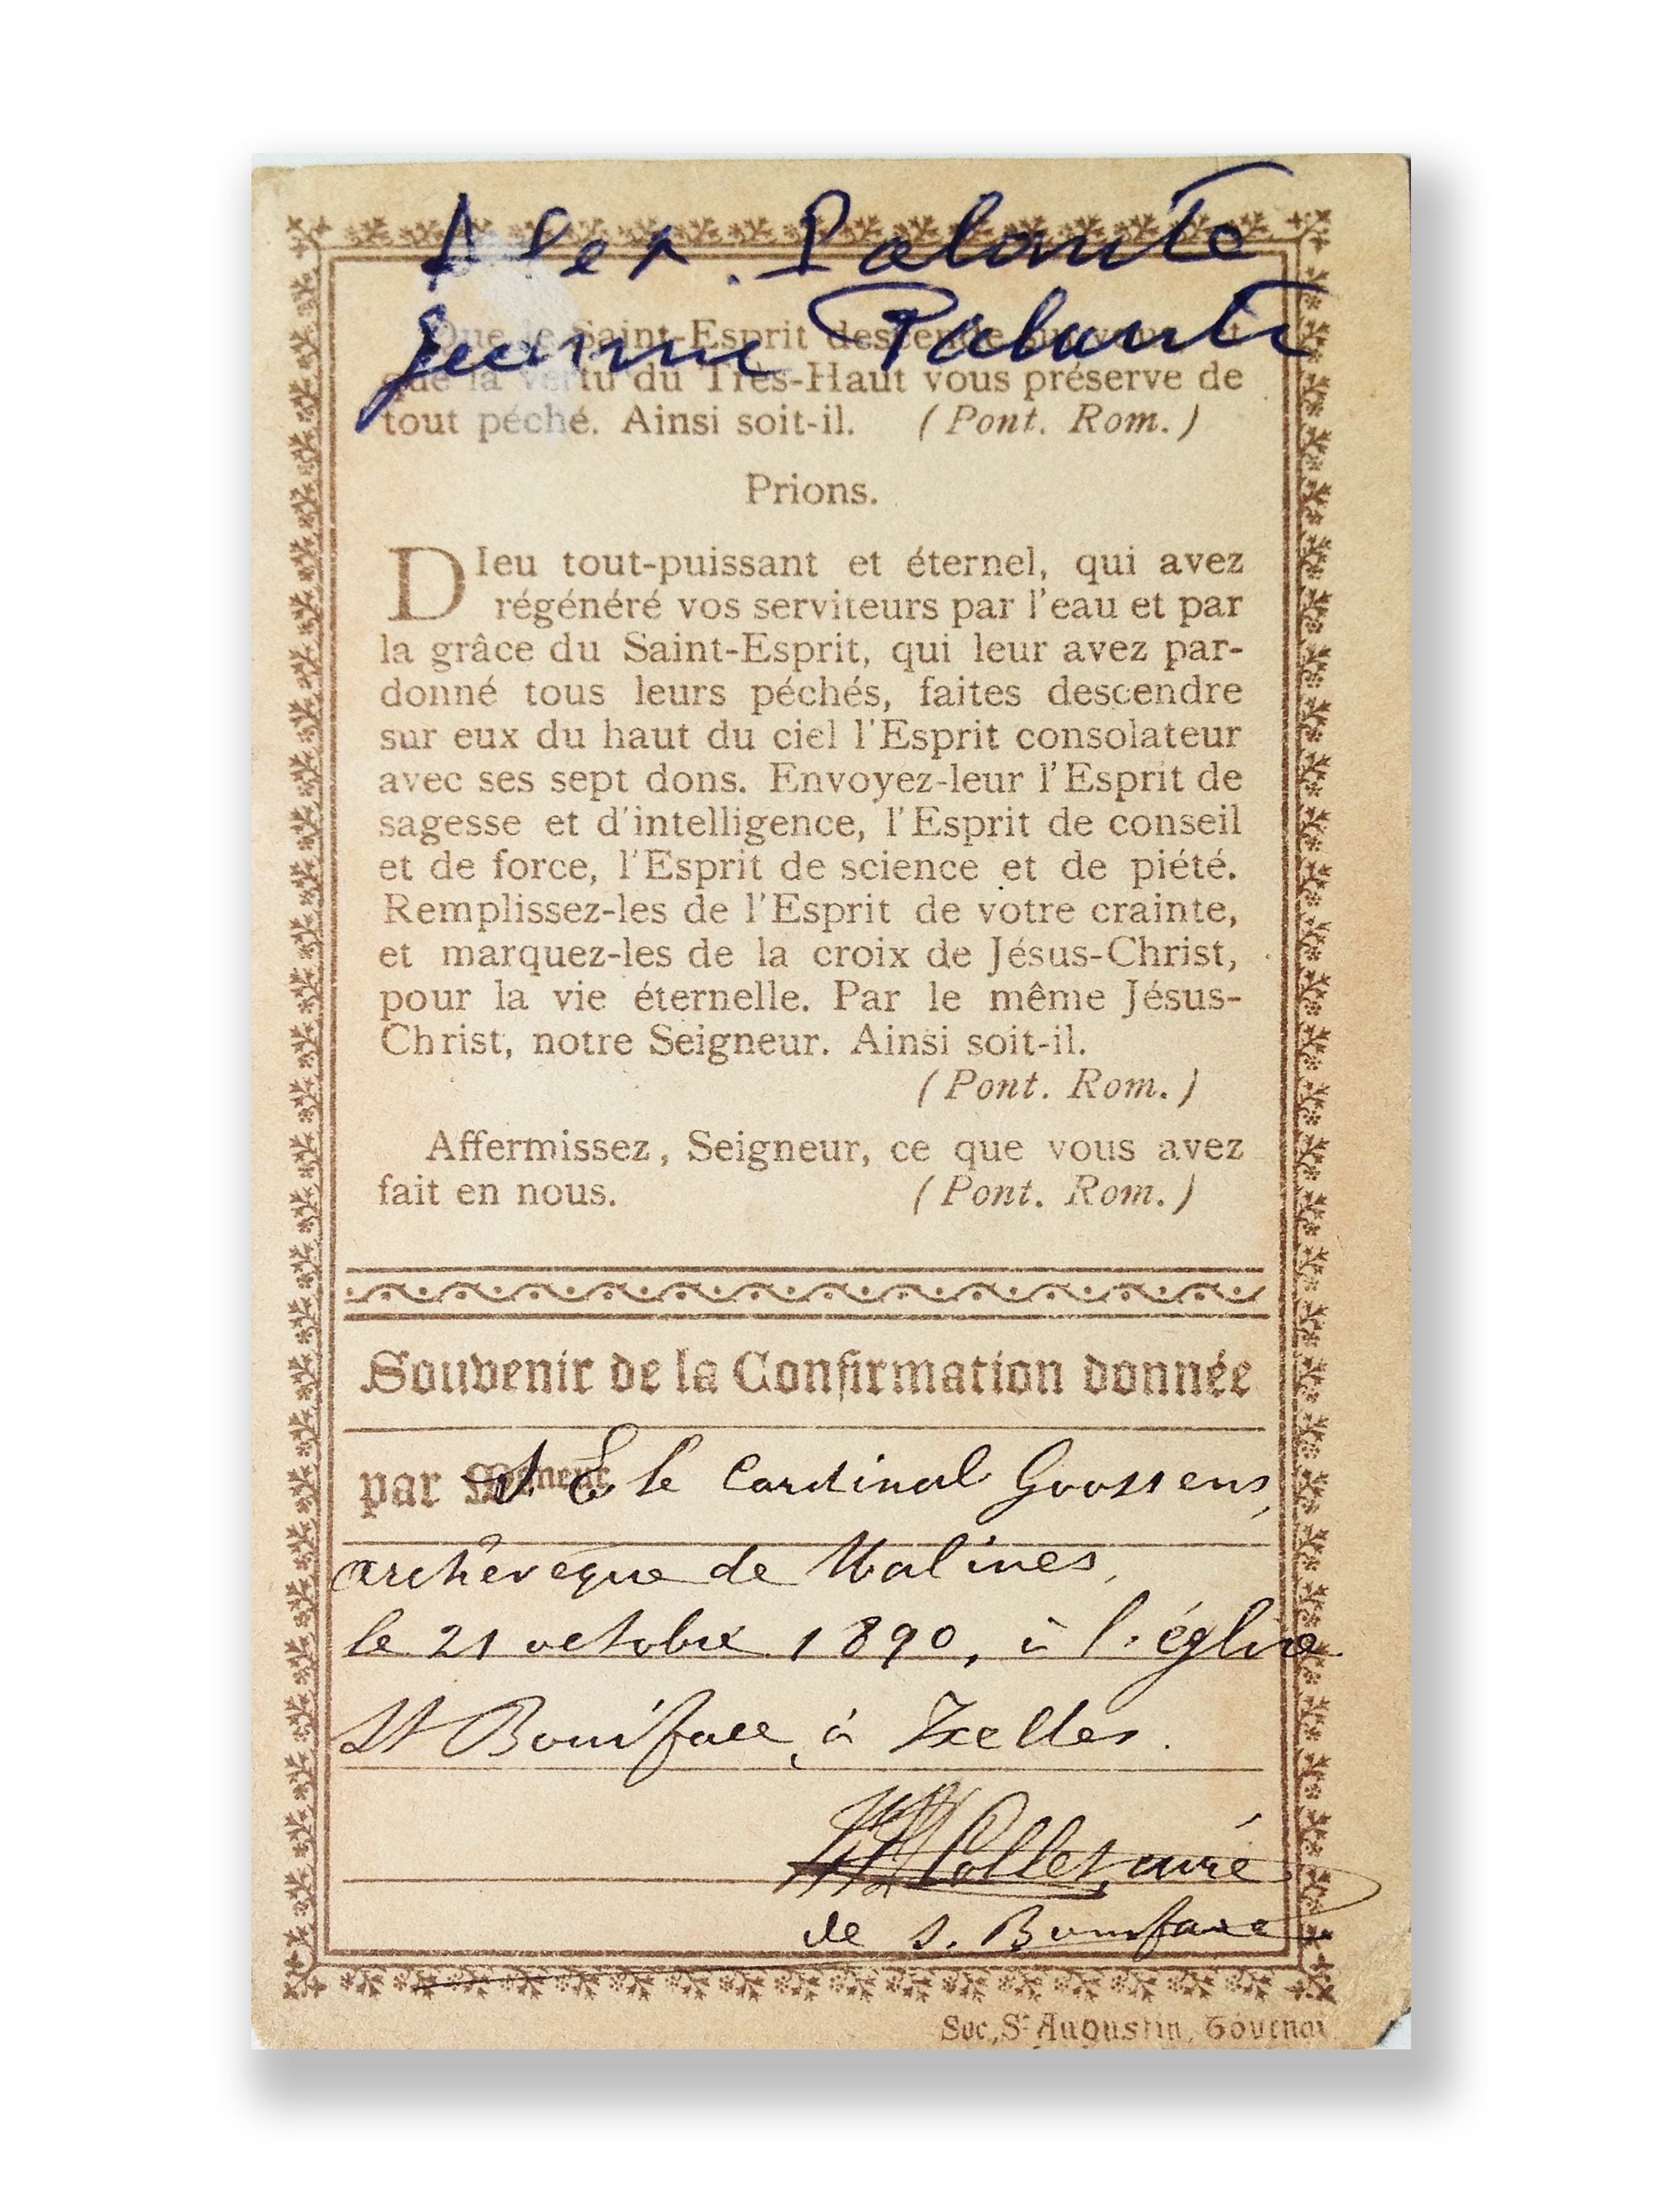 Alex. Palante
Jeanne Palante
Que le Saint-Esprit descende sur vous et
que la vertu du Très-Haut vous préserve de
tout péché. Ainsi soit-il. (Pont. Rom.)
Prions.
DIeu tout-puissant et éternel, qui avez
régénéré vos serviteurs par l'eau et par
la grâce du Saint-Esprit, qui leur avez par-
donné tous leurs péchés, faites descendre
sur eux du haut du ciel l'Esprit consolateur
avec ses sept dons. Envoyez-leur l'Esprit de
sagesse et d'intelligence, l'Esprit de conseil
et de force, l'Esprit de science et de piété.
Remplissez-les de l'Esprit de votre crainte,
et marquez-les de la croix de Jésus-Christ,
pour la vie éternelle. Par le même Jésus-
Christ, notre Seigneur. Ainsi soit-il.
(Pont. Rom.)
Affermissez, Seigneur, ce que vous avez
fait en nous. (Pont. Rom.)
Souvenir de la Confirmation donnée
par S. E. le Cardinal Goossens,
archevêque de Malines,
le 21 octobre 1890, à l'église
St Boniface, à Ixelles.
Collet, curé
de S. Boniface
Soc. St Augustin, Tournai